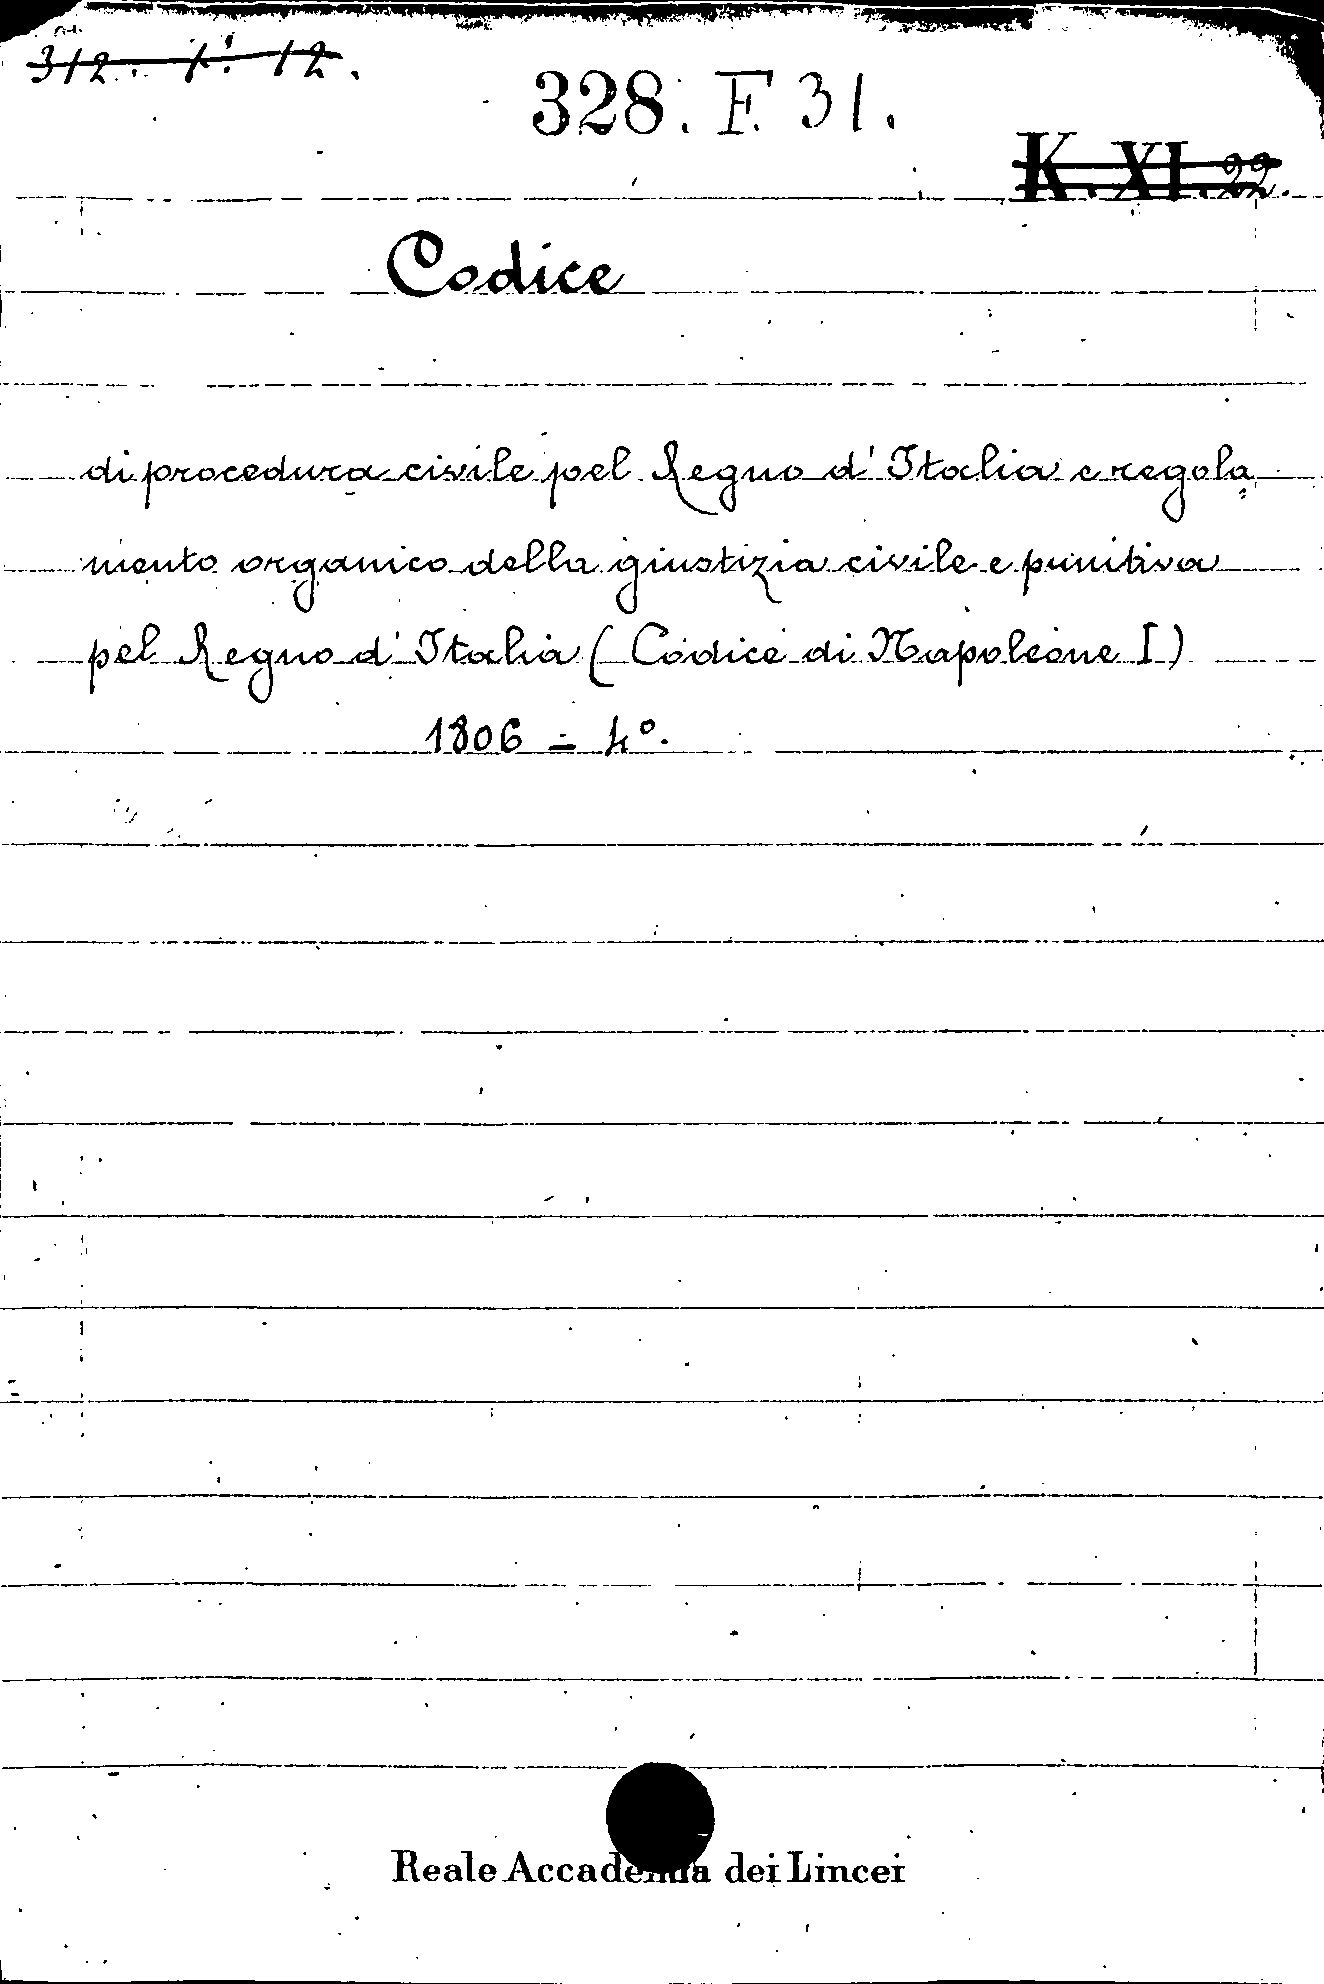 312. F. 12.
328. F. 31.
K. XI. 22.
Codice
di procedura civile pel Regno d'Italia e regola
mento organico della giustizia civile e punitiva
pel Regno d'Italia (Codice di Napoleone I)
1806 = 4°.
Reale Accademia dei Lincei